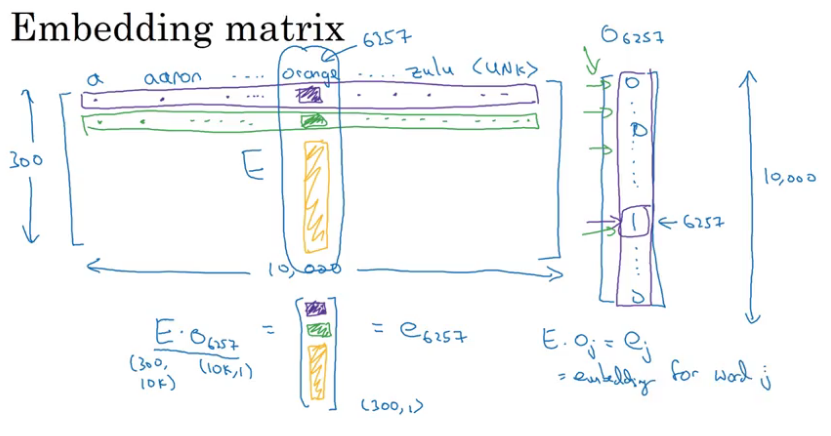 Embedding matrix
6257
O6257
a aaron ..... orange ..... zulu <UNK>
0
0
300
E
10,000
1 ← 6257
10,000
0
E · O6257 = = e6257
(300, 10K) (10K, 1)
(300, 1)
E · Oj = ej
= embedding for word j